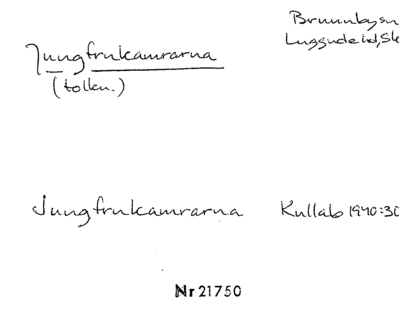 Jungfrukamrarna
(tolkn.)
Brunnbysn
Luggudehd, Sk
Jungfrukamrarna Kullab 1940:30
Nr 21750